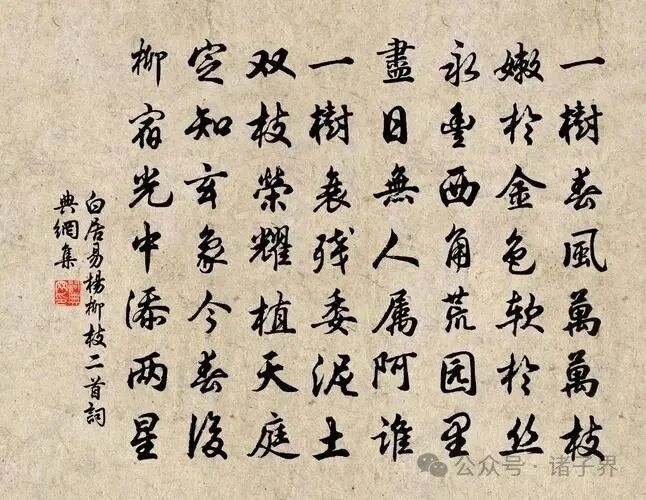 一樹春風萬萬枝
嫩於金色软於丝
永豊西角荒园里
盡日無人属阿谁
一樹衰残委泥土
双枝榮耀植天庭
定知玄象今春後
柳宿光中添两星
白居易楊柳枝二首詞
典網集
公众号·诸子界